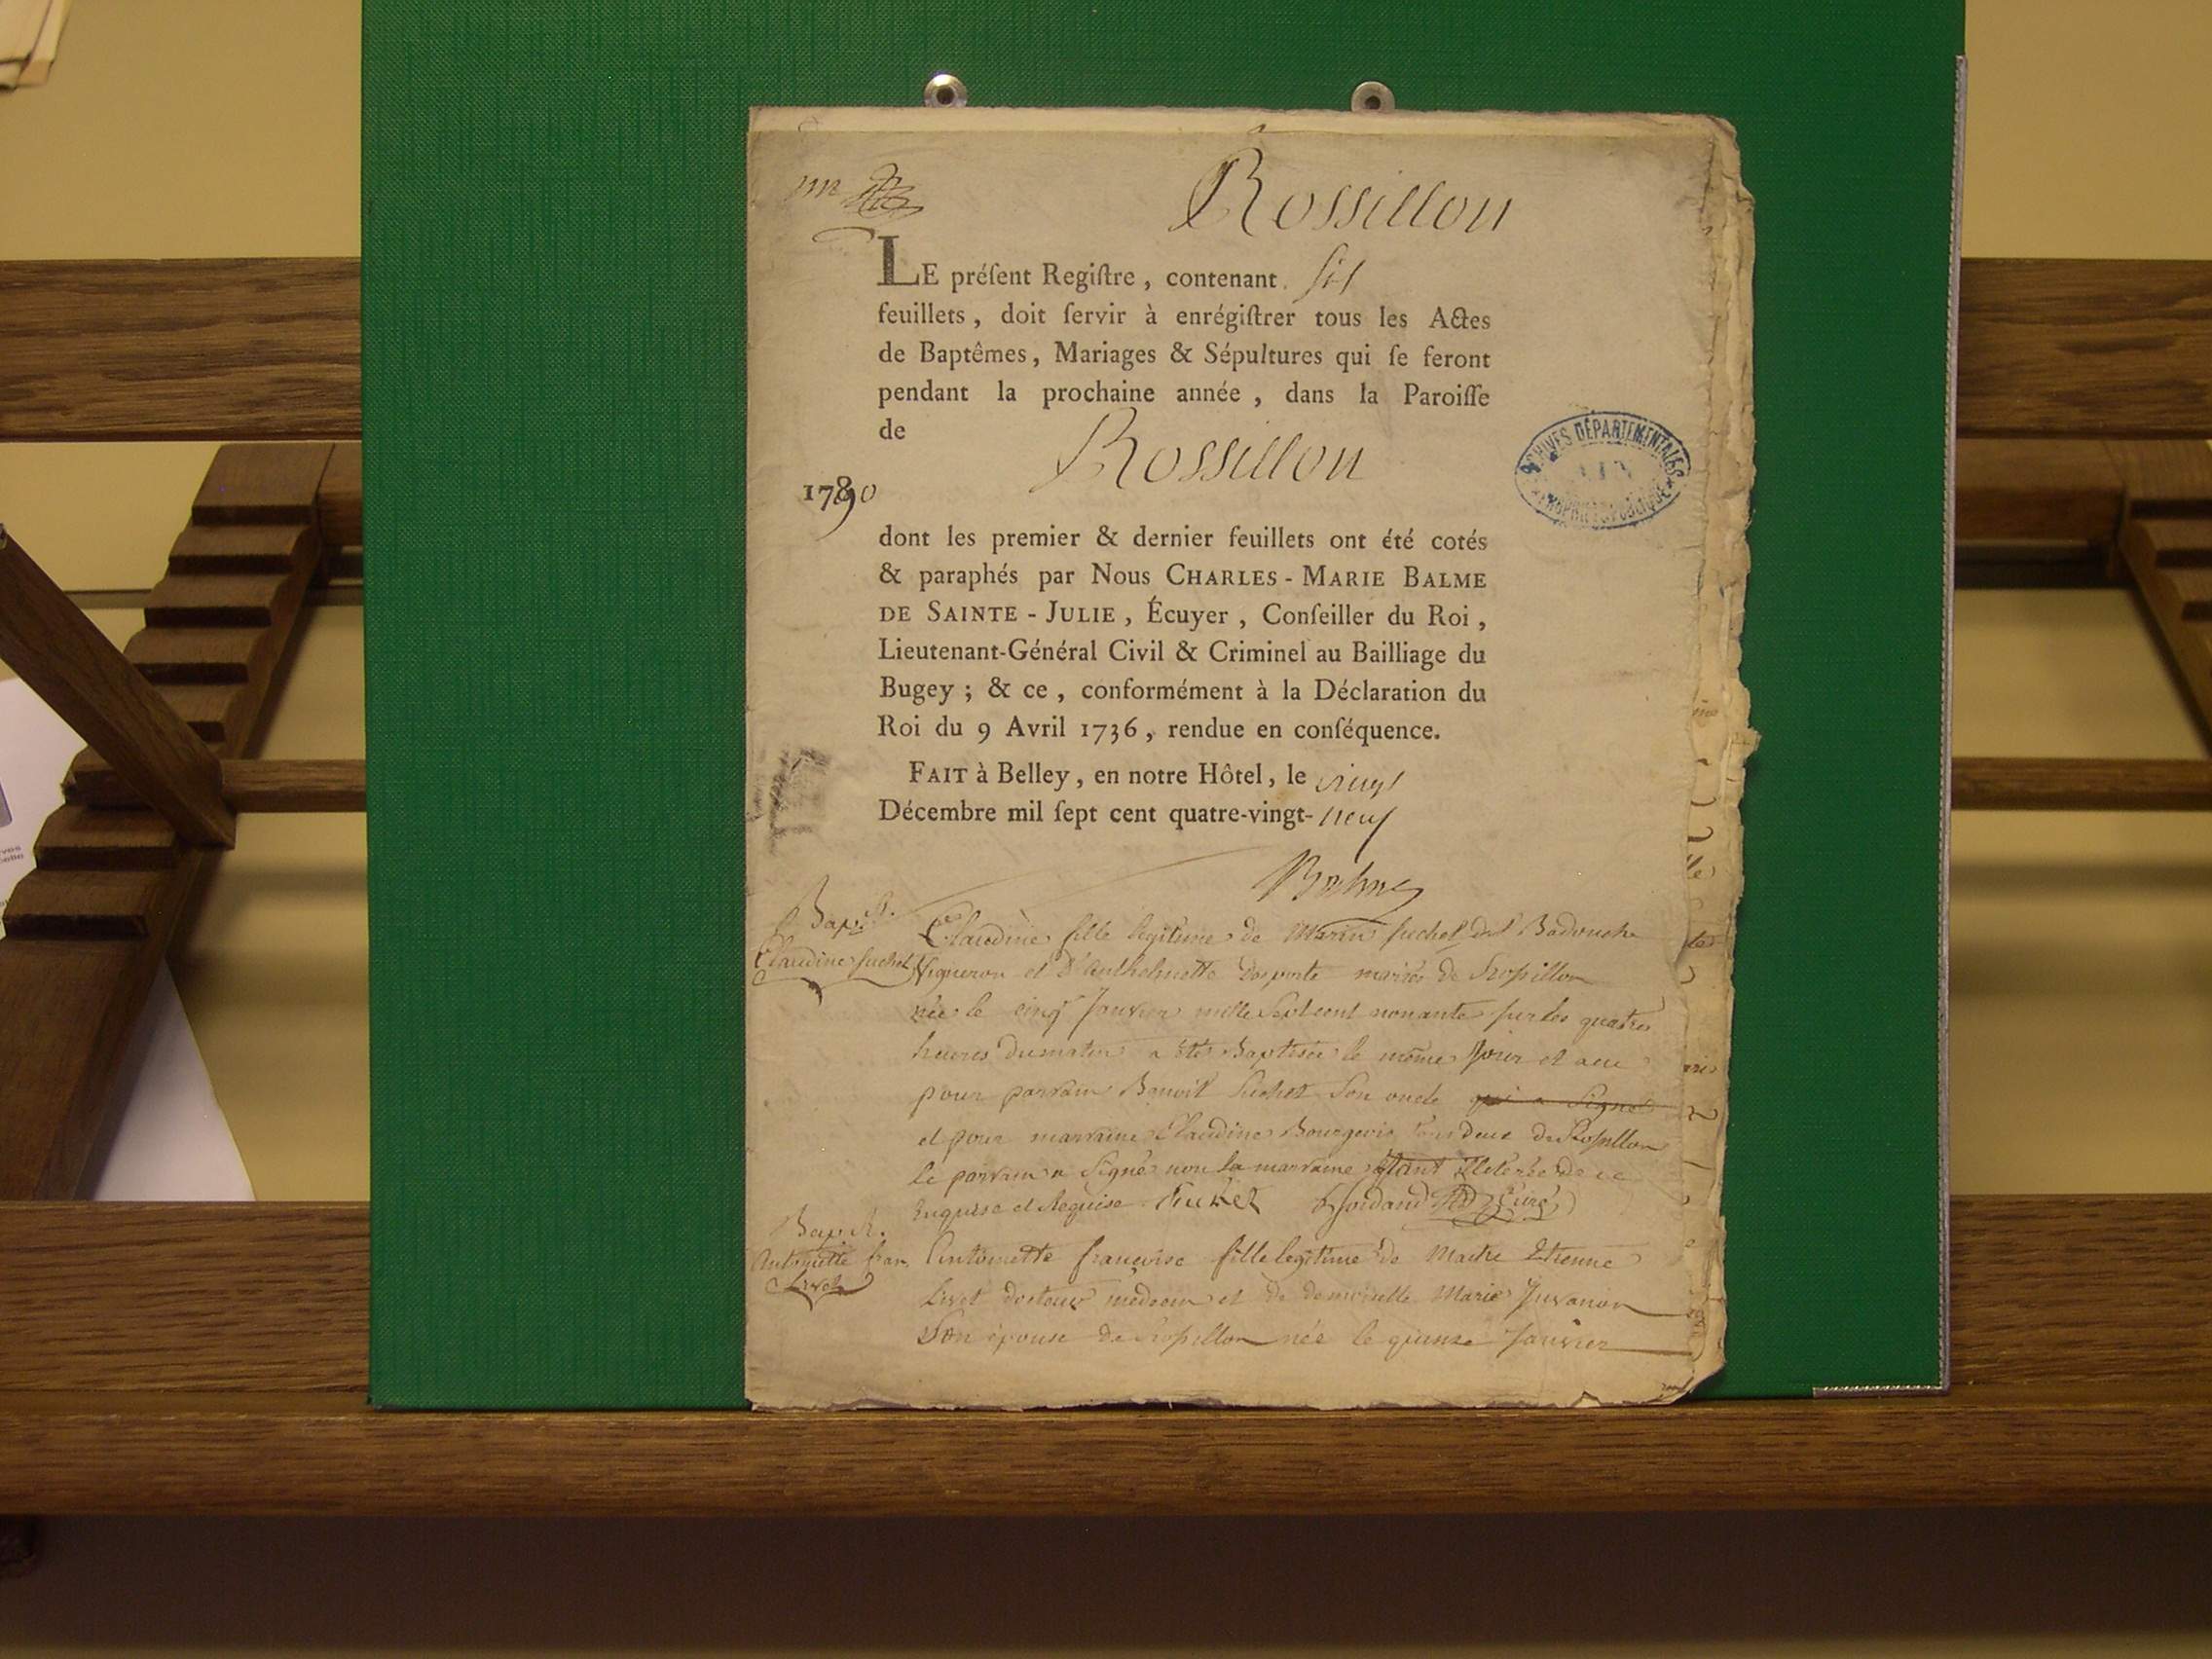 Rossillon
LE préſent Regiſtre, contenant ſix
feuillets, doit ſervir à enrégiſtrer tous les Actes
de Baptêmes, Mariages & Sépultures qui ſe feront
pendant la prochaine année, dans la Paroiſſe
de Rossillon
1790
dont les premier & dernier feuillets ont été cotés
& paraphés par Nous CHARLES-MARIE BALME
DE SAINTE-JULIE, Écuyer, Conſeiller du Roi,
Lieutenant-Général Civil & Criminel au Bailliage du
Bugey; & ce, conformément à la Déclaration du
Roi du 9 Avril 1736, rendue en conſéquence.
FAIT à Belley, en notre Hôtel, le vingt
Décembre mil ſept cent quatre-vingt-neuf
Balme
ARCHIVES DÉPARTEMENTALES
AIN
PROPRIÉTÉ PUBLIQUE
Bapt.
Claudine Suchet
Claudine fille legitime de Marin Suchet dit Badouche
Vigneron et d'Anthelmette Desporte mariés de Rossillon
née le cinq Janvier mille Sept cent nonante sur les quatres
heures du matin a été Baptisée le même Jour et a eu
pour parrain Benoit Suchet Son oncle qui a Signé
et pour marraine Claudine Bourgeois tous deux de Rossillon
le parrain a Signé non la marraine étant Illeterée de ce
Enquise et Requise. Suchet Jordand Curé
Bapt.
Antoinette fran.
Livet
Antoinette françoise fille legitime de Maitre Etienne
Livet docteur médecin et de demoiselle Marie Juvanon
Son épouse de Rossillon née le quinze Janvier